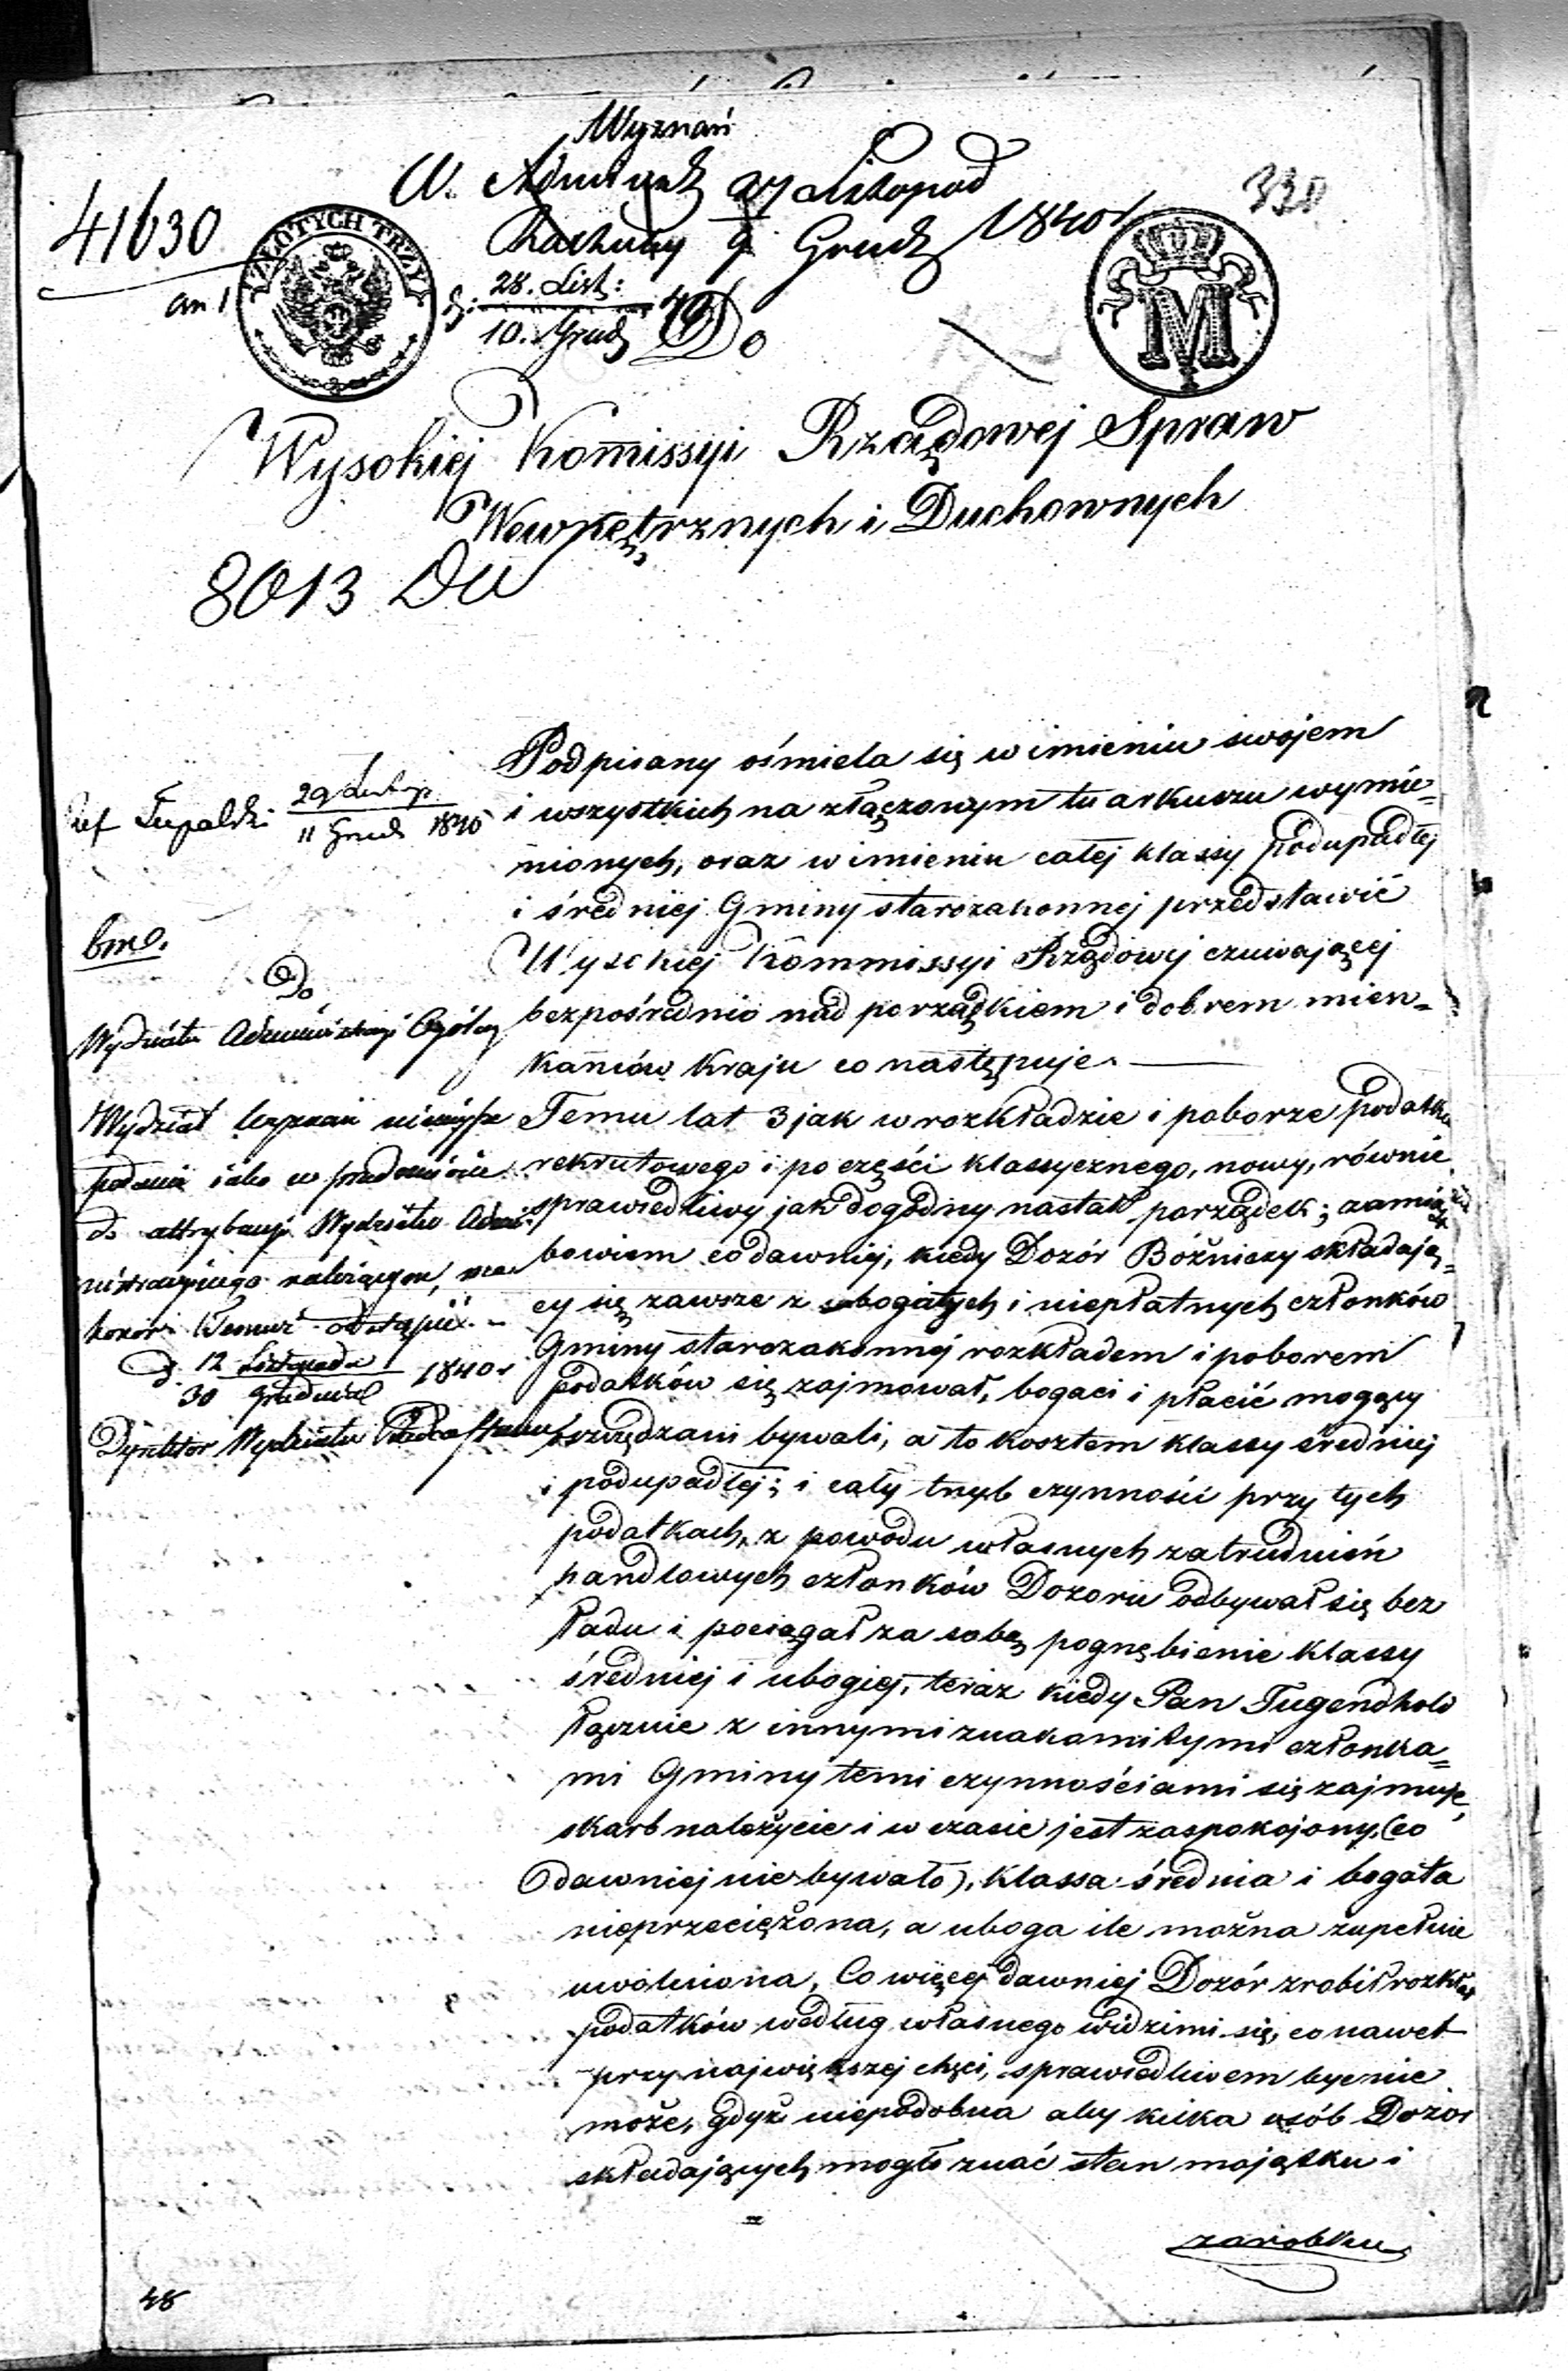 Wyznań
W. Administ 27 Listopad
41630
Rachuby 9 Grud 1840 r.
330
ZŁOTYCH TRZY
an 1
d: 28. List: 40
10. Grud
M
Do
Wysokiej Kommissyi Rządowej Spraw
Wewnętrznych i Duchownych
8013
Podpisany ośmiela się w imieniu swojem
i wszystkich na złączonym tu arkuszu wymie=
nionych, oraz w imieniu całej klassy podupadłej
i średniej Gminy starozakonnej przedstawić
Wysokiej Kommissyi Rządowej czuwającej
bezpośrednio nad porządkiem i dobrem miesz=
kańców kraju co następuje. —
Temu lat 3 jak w rozkładzie i poborze podatku
rekrutowego i po części klassycznego, nowy, równie
sprawiedliwy jak dogodny nastał porządek; zamiast
bowiem co dawniej, kiedy Dozór Bóżniczy składają=
cy się zawsze z bogatych i niepłatnych członków
Gminy starozakonnej rozkładem i poborem
podatków się zajmował, bogaci i płacić mogący
oszczędzani bywali, a to kosztem klassy średniej
i podupadłej; i cały tryb czynności przy tych
podatkach, z powodu własnych zatrudnień
handlowych członków Dozoru odbywał się bez
ładu i pociągał za sobą pognębienie klassy
średniej i ubogiej, teraz kiedy Pan Tugendhold
łącznie z innymi znakomitymi członka=
mi Gminy temi czynnościami się zajmuje,
skarb należycie i w czasie jest zaspokojony, (co
dawniej nie bywało), klassa średnia i bogata
nieprzeciężona, a uboga ile można zupełnie
uwolniona. Co więcej dawniej Dozór zrobił rozkład
podatków według własnego widzimi się, co nawet
przy największej chęci, sprawiedliwem być nie
może, gdyż niepodobna aby kilka osób Dozór
składających mogło znać stan majątku i
zarobku
29 Listop.
11 Grud 1840
Do
Wydziału Administracyi Ogólnej
Wydział Wyznań niniejsze
podanie jako w przedmiocie
do attrybucyi Wydziału Admi=
nistracyjnego należącym, ma
honor Temuż odstąpić.
d. 12 Listopada 1840 r.
30 Grudnia
Dyrektor Wydziału
48